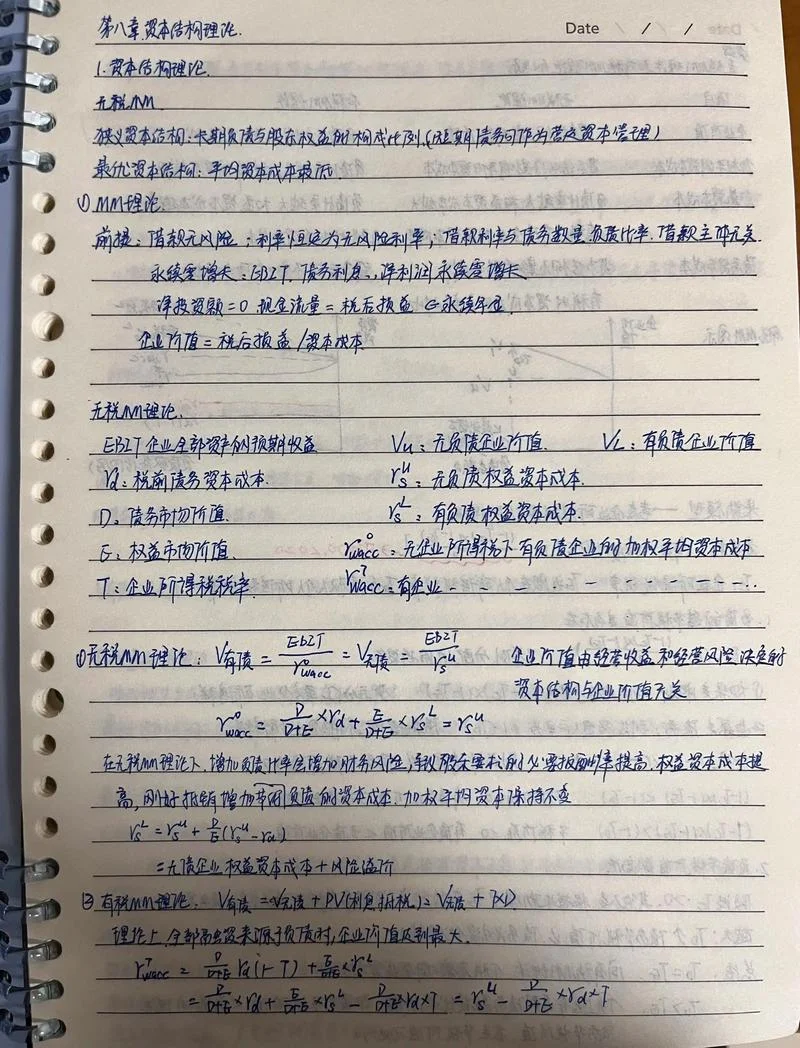 第八章 资本结构理论.
Date / / /
1. 资本结构理论.
无税MM
狭义资本结构：长期负债与股东权益的构成比例.(短期债务可作为营运资本管理)
最优资本结构：平均资本成本最低
① MM理论.
前提：借款无风险；利率恒定为无风险利率；借款利率与债务数量.负债比率.借款主体无关.
永续零增长：EBIT、债务利息、净利润永续零增长
净投资额=0 现金流量=税后损益 永续年金.
企业价值=税后损益/资本成本
无税MM理论.
EBIT 企业全部资产的预期收益 Vu：无负债企业价值. VL：有负债企业价值
rd：税前债务资本成本. rsᵘ：无负债权益资本成本.
D：债务市场价值. rsᴸ：有负债权益资本成本.
E：权益市场价值. r⁰wacc：无企业所得税下有负债企业的加权平均资本成本
T：企业所得税税率. rᵀwacc：有企业 - - - - - - - - - - ..
①无税MM理论：V有债 = EBIT/r⁰wacc = V无债 = EBIT/rsᵘ 企业价值由经营收益和经营风险决定的
资本结构与企业价值无关
r⁰wacc = D/(D+E) × rd + E/(D+E) × rsᴸ = rsᵘ
在无税MM理论下，增加负债比率会增加财务风险，导致股东要求的必要报酬率提高.权益资本成本提
高，刚好抵销增加节约负债的资本成本.加权平均资本保持不变
rsᴸ = rsᵘ + D/E(rsᵘ-rd)
=无债企业权益资本成本+风险溢价
② 有税MM理论：V有债 = V无债 + PV(利息抵税) = V无债 + T×D
理论上.全部融资来源于负债时，企业价值达到最大.
rᵀwacc = D/(D+E) rd(1-T) + E/(D+E) × rsᴸ
= D/(D+E) × rd + E/(D+E) × rsᴸ - D/(D+E) × rd × T = rsᵘ - D/(D+E) × rd × T